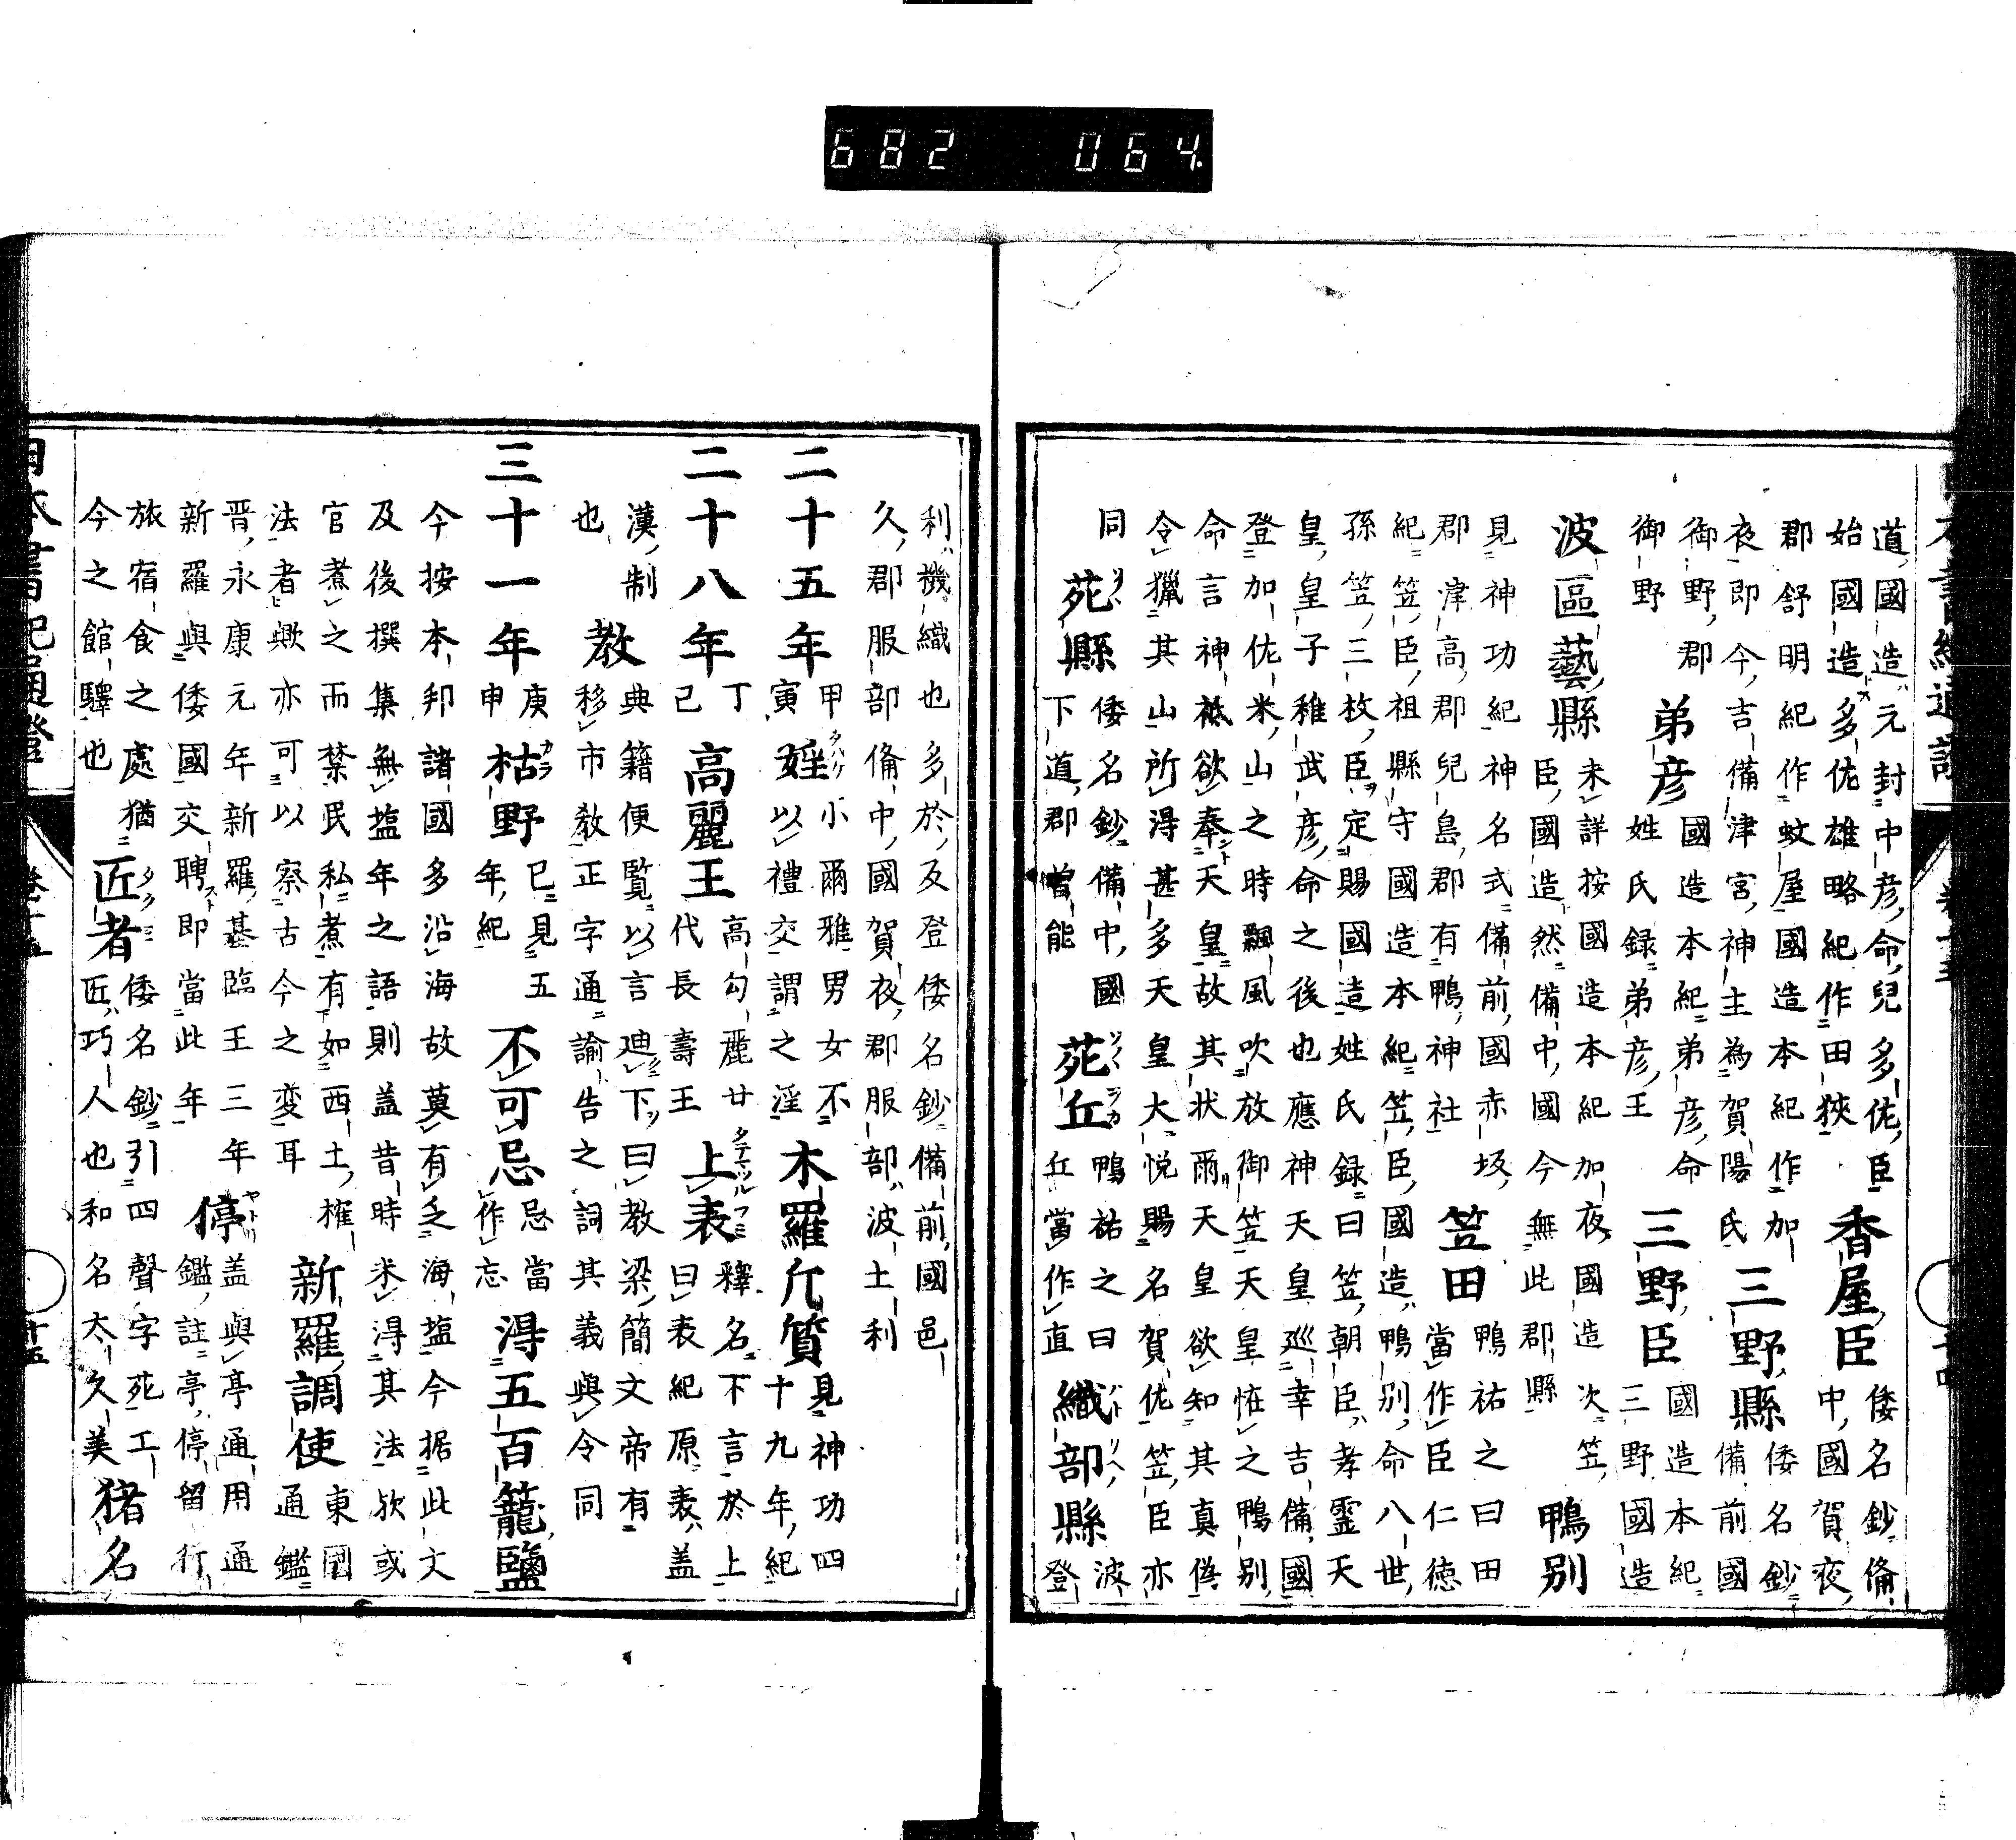 682 064
道國造元封中彦命兒多佐臣
始國造多佐雄略紀作田狹
香屋臣
倭名鈔備
中國賀夜
郡舒明紀作蚊屋國造本紀作加
夜即今吉備津宮神主為賀陽氏
三野縣
倭名鈔
備前國
御野郡
弟彦
國造本紀弟彦命
姓氏録弟彦王
三野臣
國造本紀
三野國造
御野
波區藝縣
未詳按國造本紀加夜國造次笠
臣國造然備中國今無此郡縣
鴨別
見神功紀神名式備前國赤坂
郡津高郡兒島郡有鴨神社
笠田
鴨祐之曰田
當作臣仁徳
紀笠臣祖縣守國造本紀笠臣國造鴨別命八世
孫笠三枚臣定賜國造姓氏録曰笠朝臣孝霊天
皇皇子稚武彦命之後也應神天皇巡幸吉備國
登加佐米山之時飄風吹放御笠天皇恠之鴨別
命言神祗欲奉天皇故其状爾天皇欲知其真偽
令獵其山所淂甚多天皇大悦賜名賀佐笠臣亦
同
苑縣
倭名鈔備中國
下道郡曽能
苑丘
鴨祐之曰
丘當作直
織部縣
波
登
利機織也多於及登倭名鈔備前國邑
久郡服部備中國賀夜郡服部波土利
二十五年
甲
寅
婬
小爾雅男女不
以禮交謂之淫
木羅斤質
見神功四
十九年紀
二十八年
丁
己
高麗王
高勾麗廿
代長壽王
上表
釋名下言於上
曰表紀原表蓋
漢制
也
教
典籍便覧以言迪下曰教梁簡文帝有
移市教正字通諭告之詞其義與令同
三十一年
庚
申
枯野
已見五
年紀
不可忌
忌當
作忘
淂五百籠鹽
今按本邦諸國多沿海故莫有乏海塩今据此文
及後撰集無塩年之語則蓋昔時未淂其法欤或
官煮之而禁民私煮有如西土榷
法者歟亦可以察古今之変耳
新羅調使
東國
通鑑
晋永康元年新羅基臨王三年
新羅與倭國交聘即當此年
停
盖與亭通用通
鑑註亭停留行
旅宿食之處猶
今之館驛也
匠者
倭名鈔引四聲字苑工
匠巧人也和名太久美
猪名